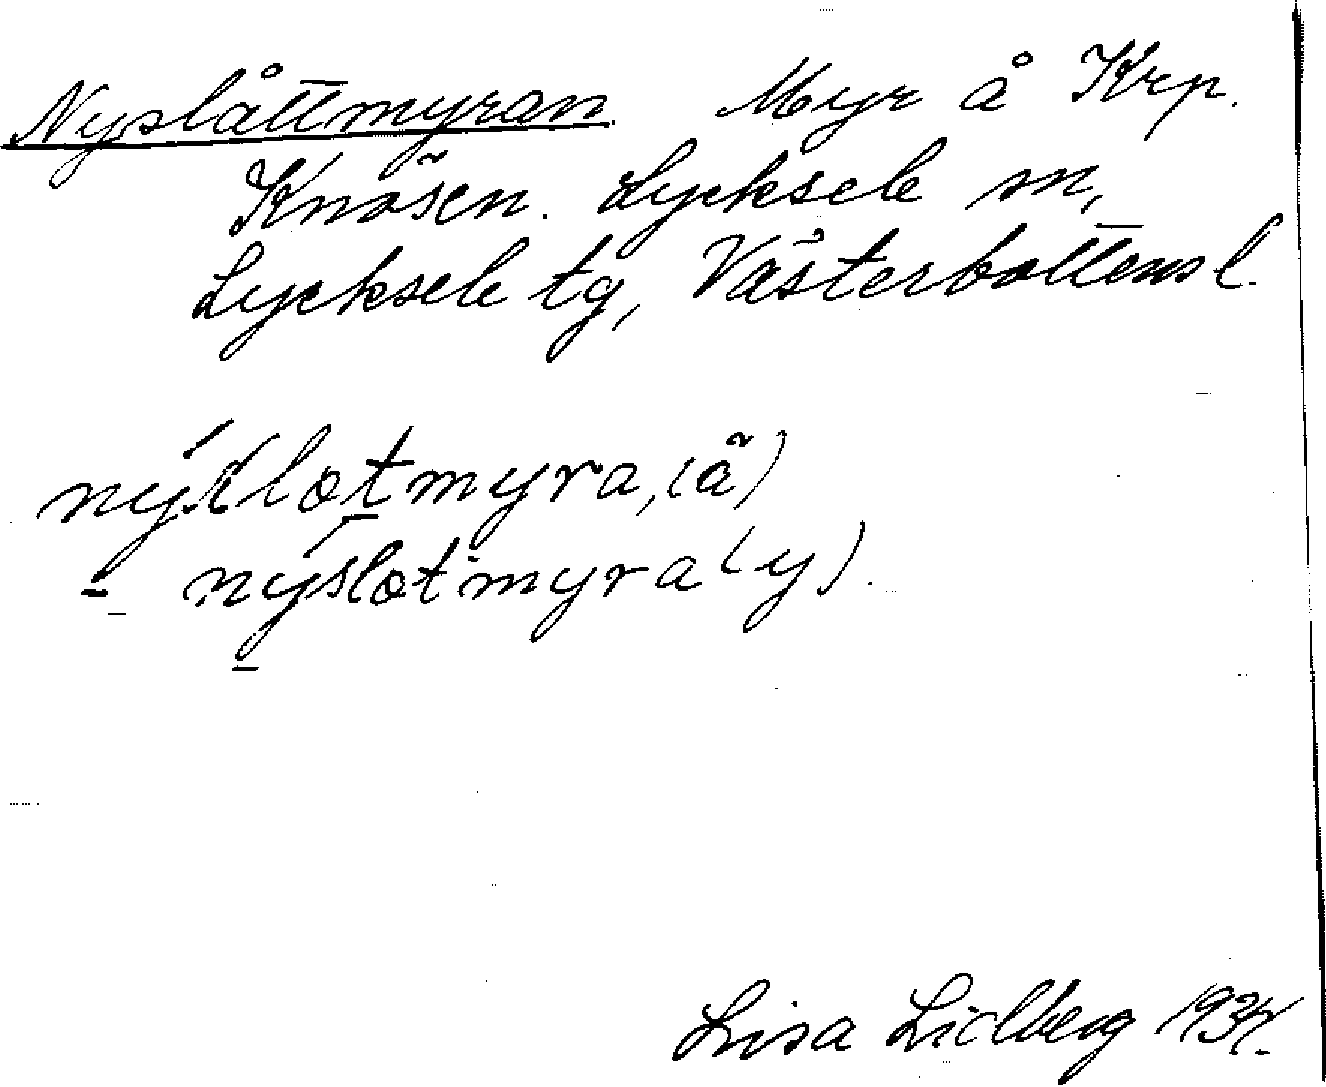 Nyslåttmyran. Myr å Krp.
Knösen. Lycksele sn,
Lycksele tg, Västerbottens l.
nýslotmyra, (ä)
- nýslotmyra (y).
Lisa Lidberg